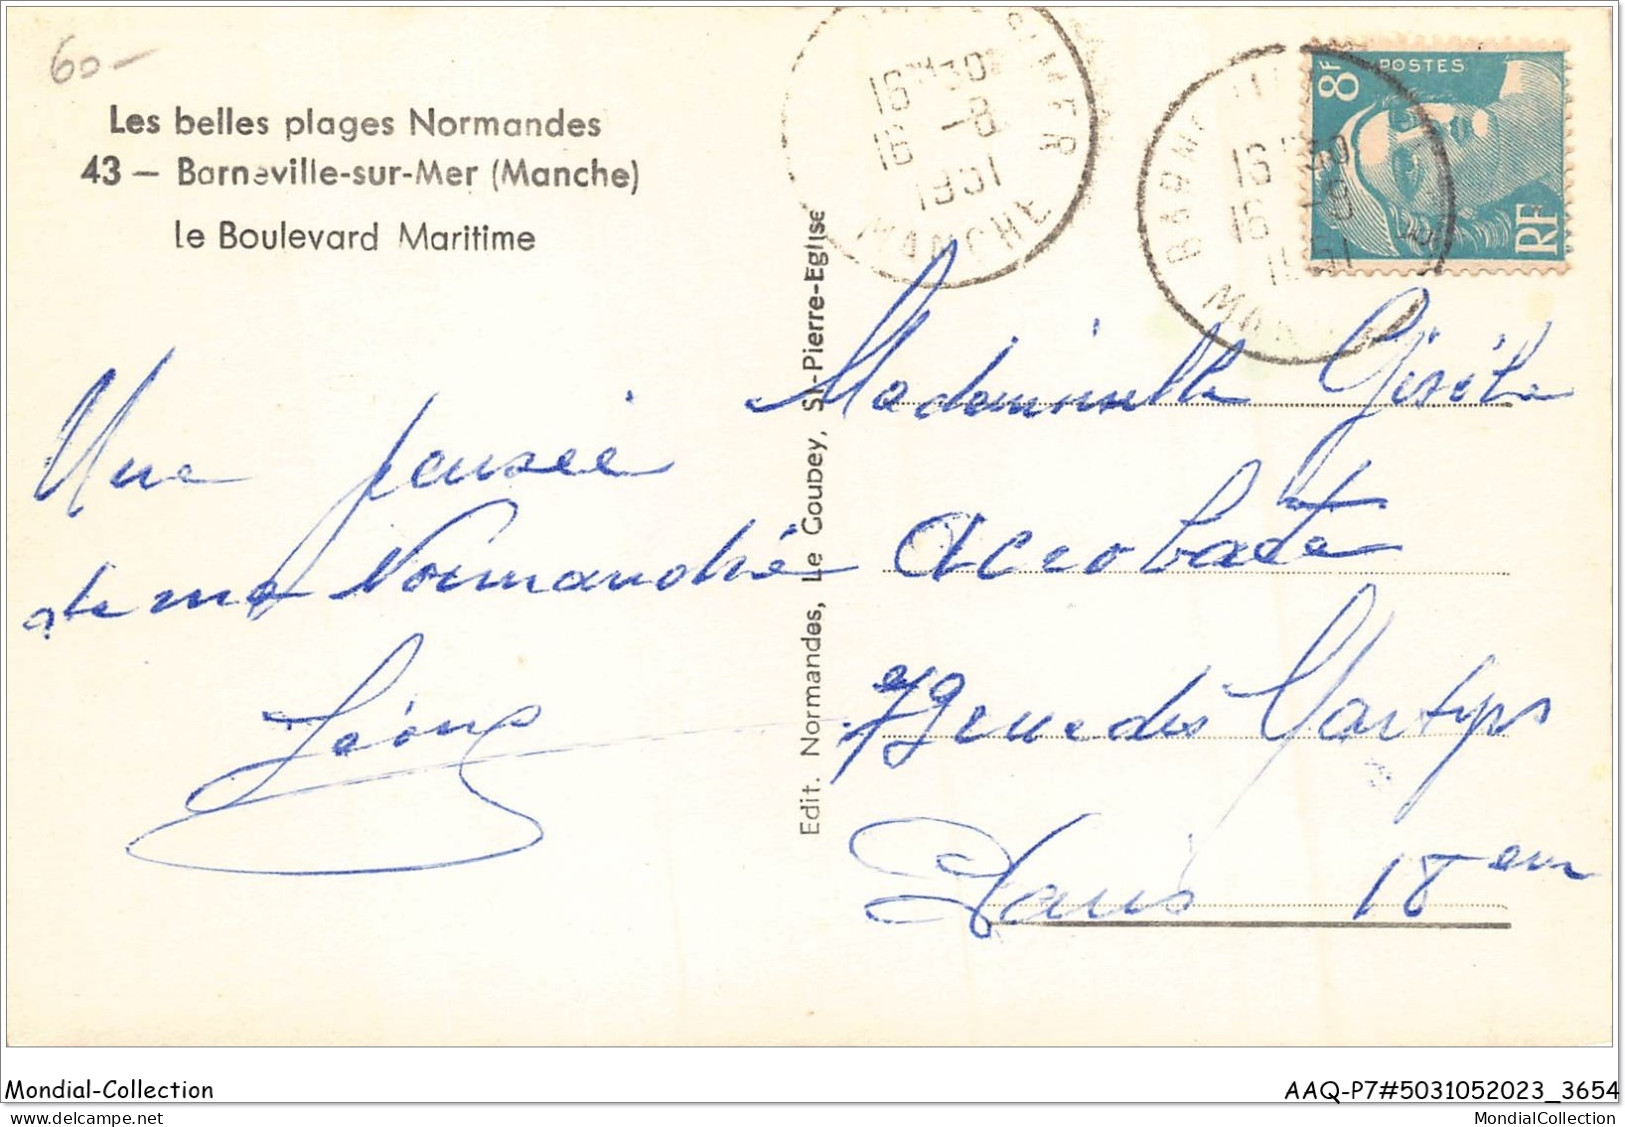 60-
Les belles plages Normandes
43 — Barneville-sur-Mer (Manche)
Le Boulevard Maritime
Une pensée
de ma Normandie
Edit. Normandes, Le Goubey, St-Pierre-Eglise
S/MER
16H30
16 -8
1951
MANCHE
BARN
16 30
16 -8
1951
8F
POSTES
RF
Mademoiselle Gisèle
Acrobate
rue des Martyrs
Paris 18em
Mondial-Collection
AAQ-P7#5031052023_3654
www.delcampe.net
MondialCollection